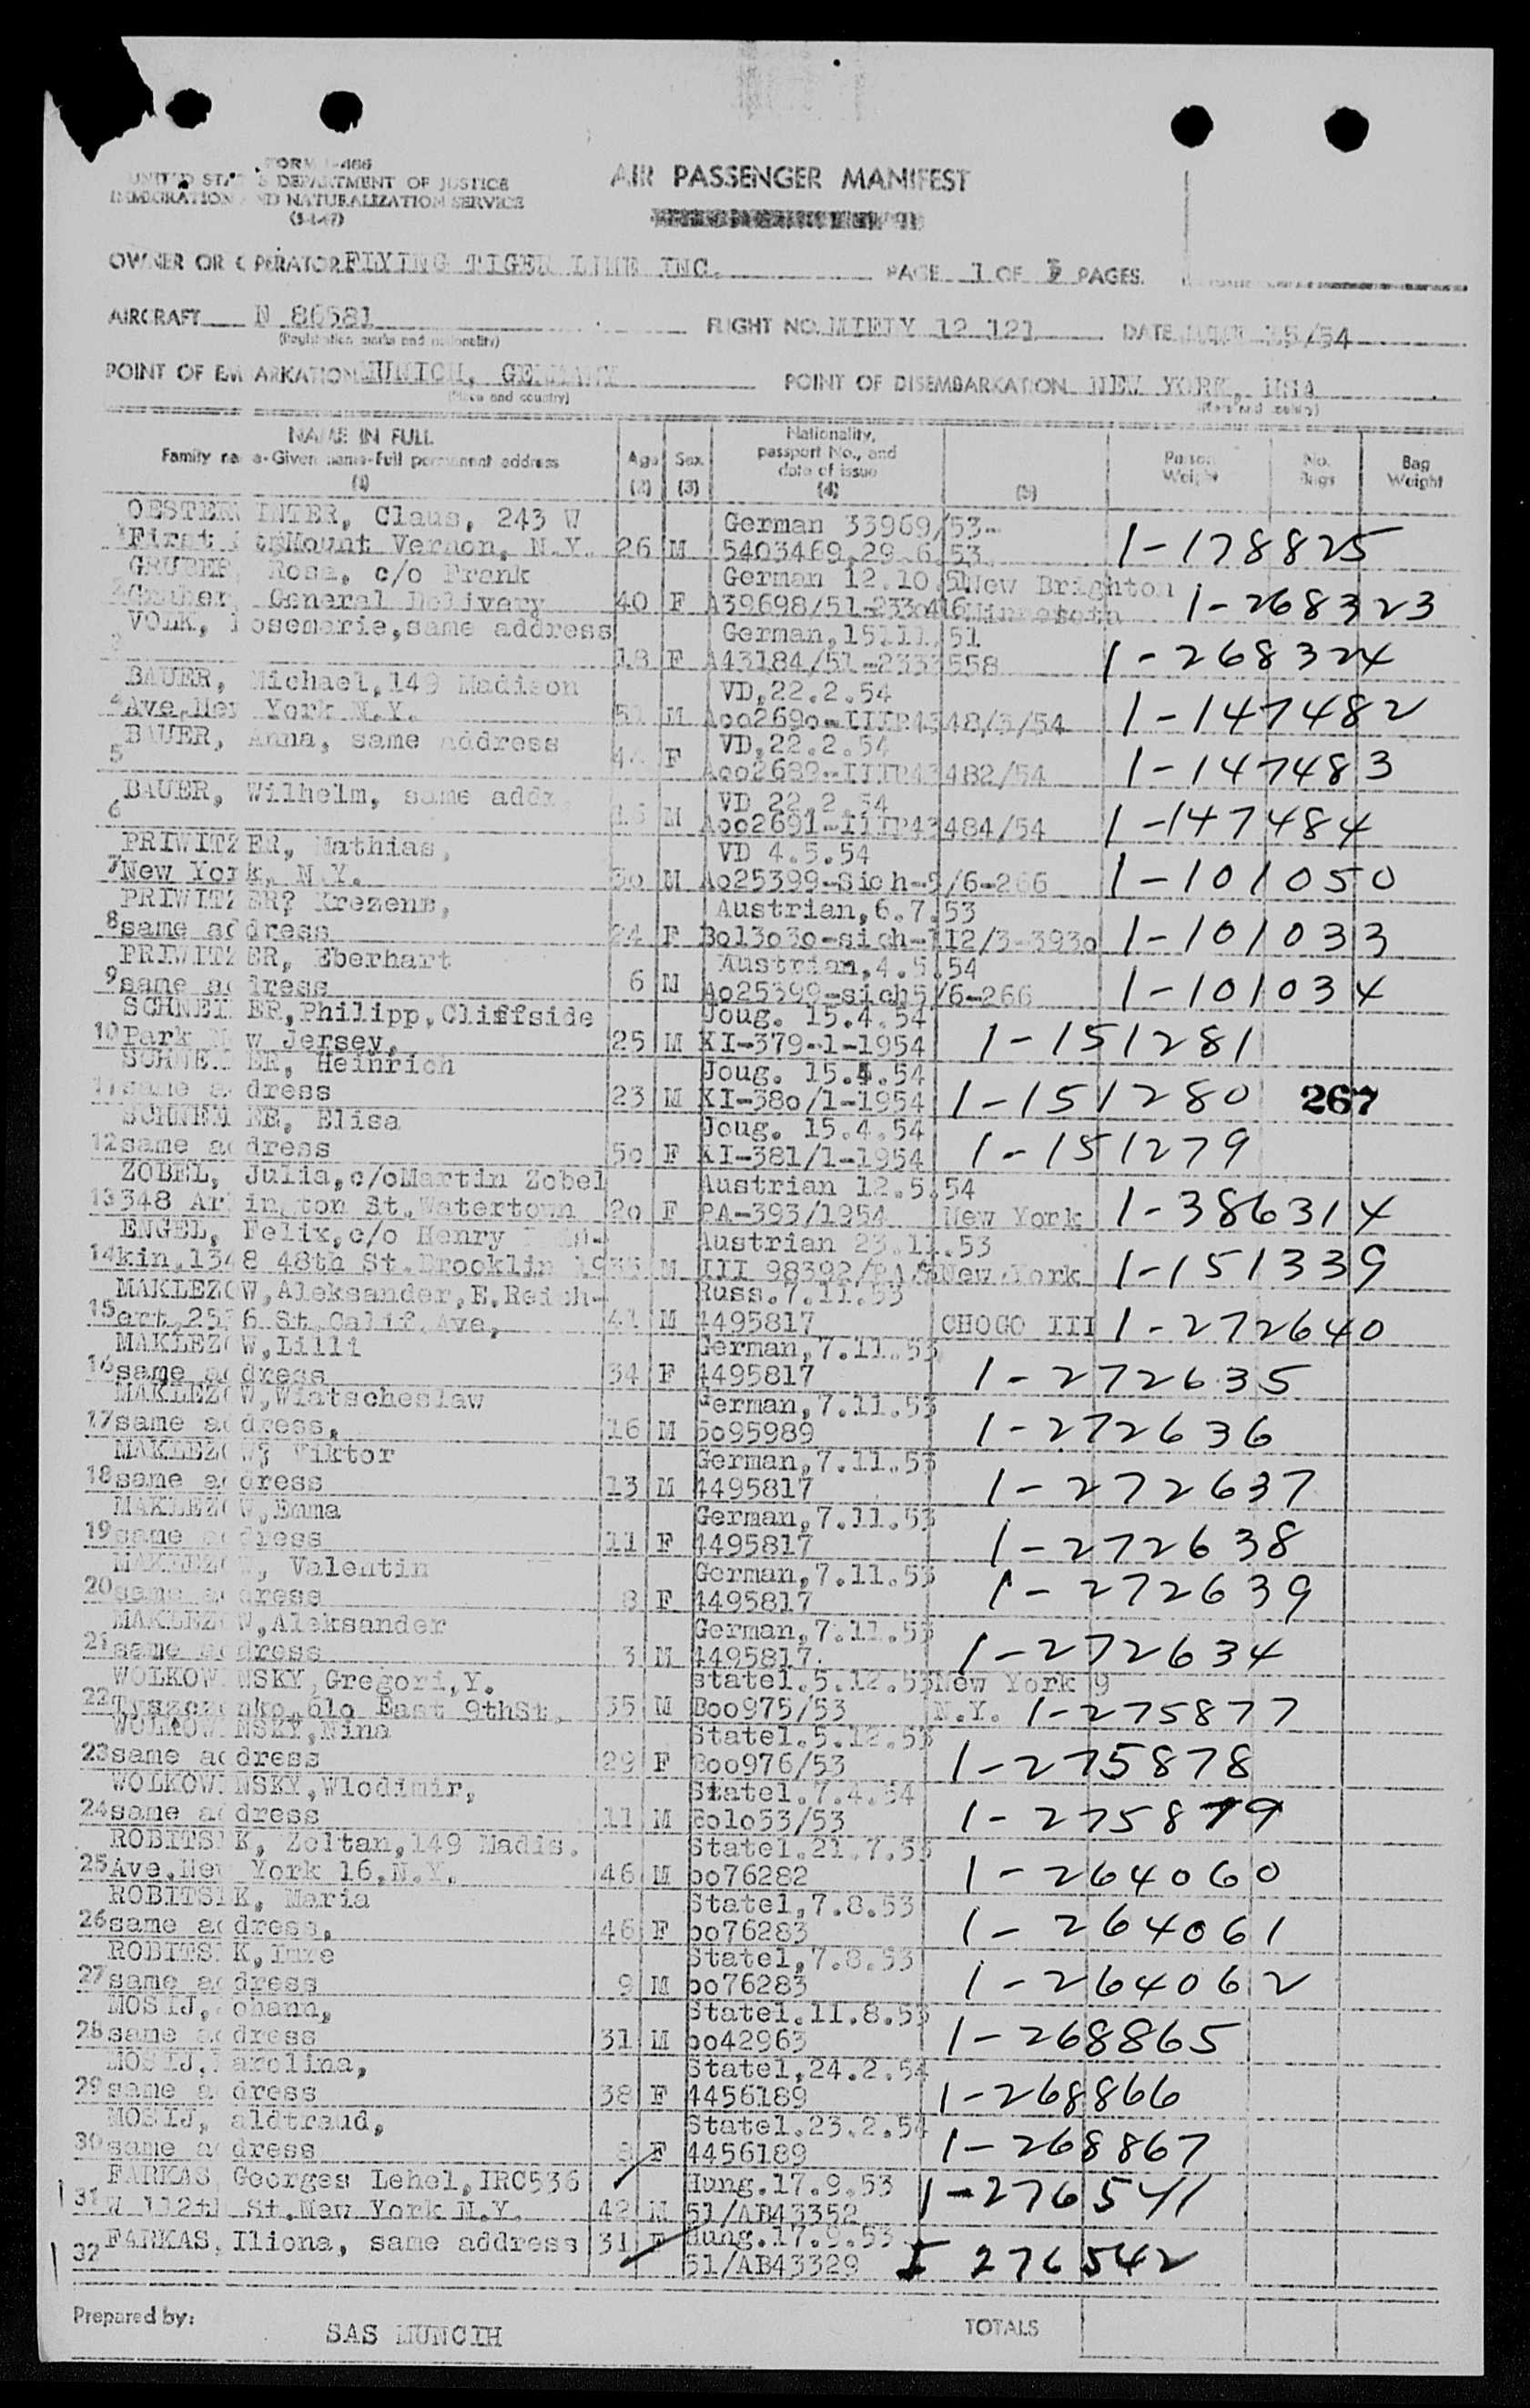 FORM I-466
UNITED STATES DEPARTMENT OF JUSTICE
IMMIGRATION AND NATURALIZATION SERVICE
AIR PASSENGER MANIFEST
OWNER OR OPERATOR FLYING TIGER LINE INC. PAGE 1 OF PAGES.
AIRCRAFT N 86581 FLIGHT NO. MIETY 12 121 DATE 15/54
(Registration marks and nationality)
POINT OF EMBARKATION MUNICH, GERMANY POINT OF DISEMBARKATION NEW YORK, USA
(Place and country) (Place and country)
NAME IN FULL
Family name-Given name-full permanent address
(1) Age (2) Sex (3) Nationality, passport No., and date of issue (4) (5) Person Weight No. Bags Bag Weight
OESTER INTER, Claus, 243 W German 33969/53-
1 First Mount Vernon, N.Y. 26 M 5403469,29.6.53 1-178825
GRUBER, Rosa, c/o Frank German 12.10.51 New Brighton
2 General Delivery 40 F A39698/51-2330416 Minnesota 1-268323
VOLK, Rosemarie, same address German, 15.11.51
3 18 F A43184/51-2333558 1-268324
BAUER, Michael, 149 Madison VD, 22.2.54
4 Ave, New York N.Y. 51 M Aoo269o-IIIP4348/3/54 1-147482
BAUER, Anna, same address VD, 22.2.54
5 44 F Aoo2689-IIIP43482/54 1-147483
BAUER, Wilhelm, same addr. VD 22.2.54
6 M Aoo2691-IIIP43484/54 1-147484
PRIWITZER, Mathias, VD 4.5.54
7 New York, N.Y. 3o M Ao25399-Sich-5/6-266 1-101050
PRIWITZER? Krezenz, Austrian, 6.7.53
8 same address 24 F Bo13o3o-sich-112/3-393o 1-101033
PRIWITZER, Eberhart Austrian, 4.5.54
9 same address 6 M Ao25399-sich5/6-266 1-101034
SCHNEI ER, Philipp, Cliffside Joug. 15.4.54
10 Park New Jersey, 25 M KI-379-1-1954 1-151281
SCHNEI ER, Heinrich Joug. 15.4.54
11 same address 23 M KI-38o/1-1954 1-151280 267
SCHNEI ER, Elisa Joug. 15.4.54
12 same address 5o F KI-381/1-1954 1-151279
ZOBEL, Julia, c/oMartin Zobel Austrian 12.5.54
13 348 Arlington St. Watertown 2o F PA-393/1954 New York 1-386314
ENGEL, Felix, c/o Henry Austrian 23.11.53
14 kin, 1348 48th St. Brooklin M III 98392/PA New York 1-151339
MAKLEZOW, Aleksander, E. Reich- Russ. 7.11.53
15 ert, 2536 St. Calif. Ave, 41 M 4495817 CHOGO III 1-272640
MAKLEZOW, Lilli German, 7.11.53
16 same address 34 F 4495817 1-272635
MAKLEZOW, Wiatscheslaw German, 7.11.53
17 same address, 16 M 5o95989 1-272636
MAKLEZOW, Viktor German, 7.11.53
18 same address 13 M 4495817 1-272637
MAKLEZOW, Emma German, 7.11.53
19 same address 11 F 4495817 1-272638
MAKLEZOW, Valentin German, 7.11.53
20 same address 8 F 4495817 1-272639
MAKLEZOW, Aleksander German, 7.11.53
21 same address 3 M 4495817. 1-272634
WOLKOWINSKY, Gregori, Y. statel. 5.12.53 New York 9
22 Tyszczenko, 61o East 9thSt. 35 M Boo975/53 N.Y. 1-275877
WOLKOWINSKY, Nina Statel. 5.12.53
23 same address 29 F Boo976/53 1-275878
WOLKOWINSKY, Wlodimir, Statel. 7.4.54
24 same address 11 M Bo1o53/53 1-275879
ROBITSEK, Zoltan, 149 Madis. Statel. 21.7.53
25 Ave. New York 16, N.Y. 46 M oo76282 1-264060
ROBITSEK, Maria Statel, 7.8.53
26 same address, 46 F oo76283 1-264061
ROBITSEK, Imre Statel, 7.8.53
27 same address 9 M oo76283 1-264062
MOSIJ, Johann, Statel. 11.8.53
28 same address 31 M oo42963 1-268865
MOSIJ, Karolina, Statel, 24.2.54
29 same address 38 F 4456189 1-268866
MOSIJ, Waldtraud, Statel. 23.2.54
30 same address 8 F 4456189 1-268867
FARKAS, Georges Lehel, IRC536 Hung. 17.9.53
31 W 112th St. New York N.Y. 42 M 51/AB43352 1-276541
FARKAS, Iliona, same address 31 F Hung. 17.9.53
32 51/AB43329 I 276542
Prepared by: SAS MUNCIH TOTALS